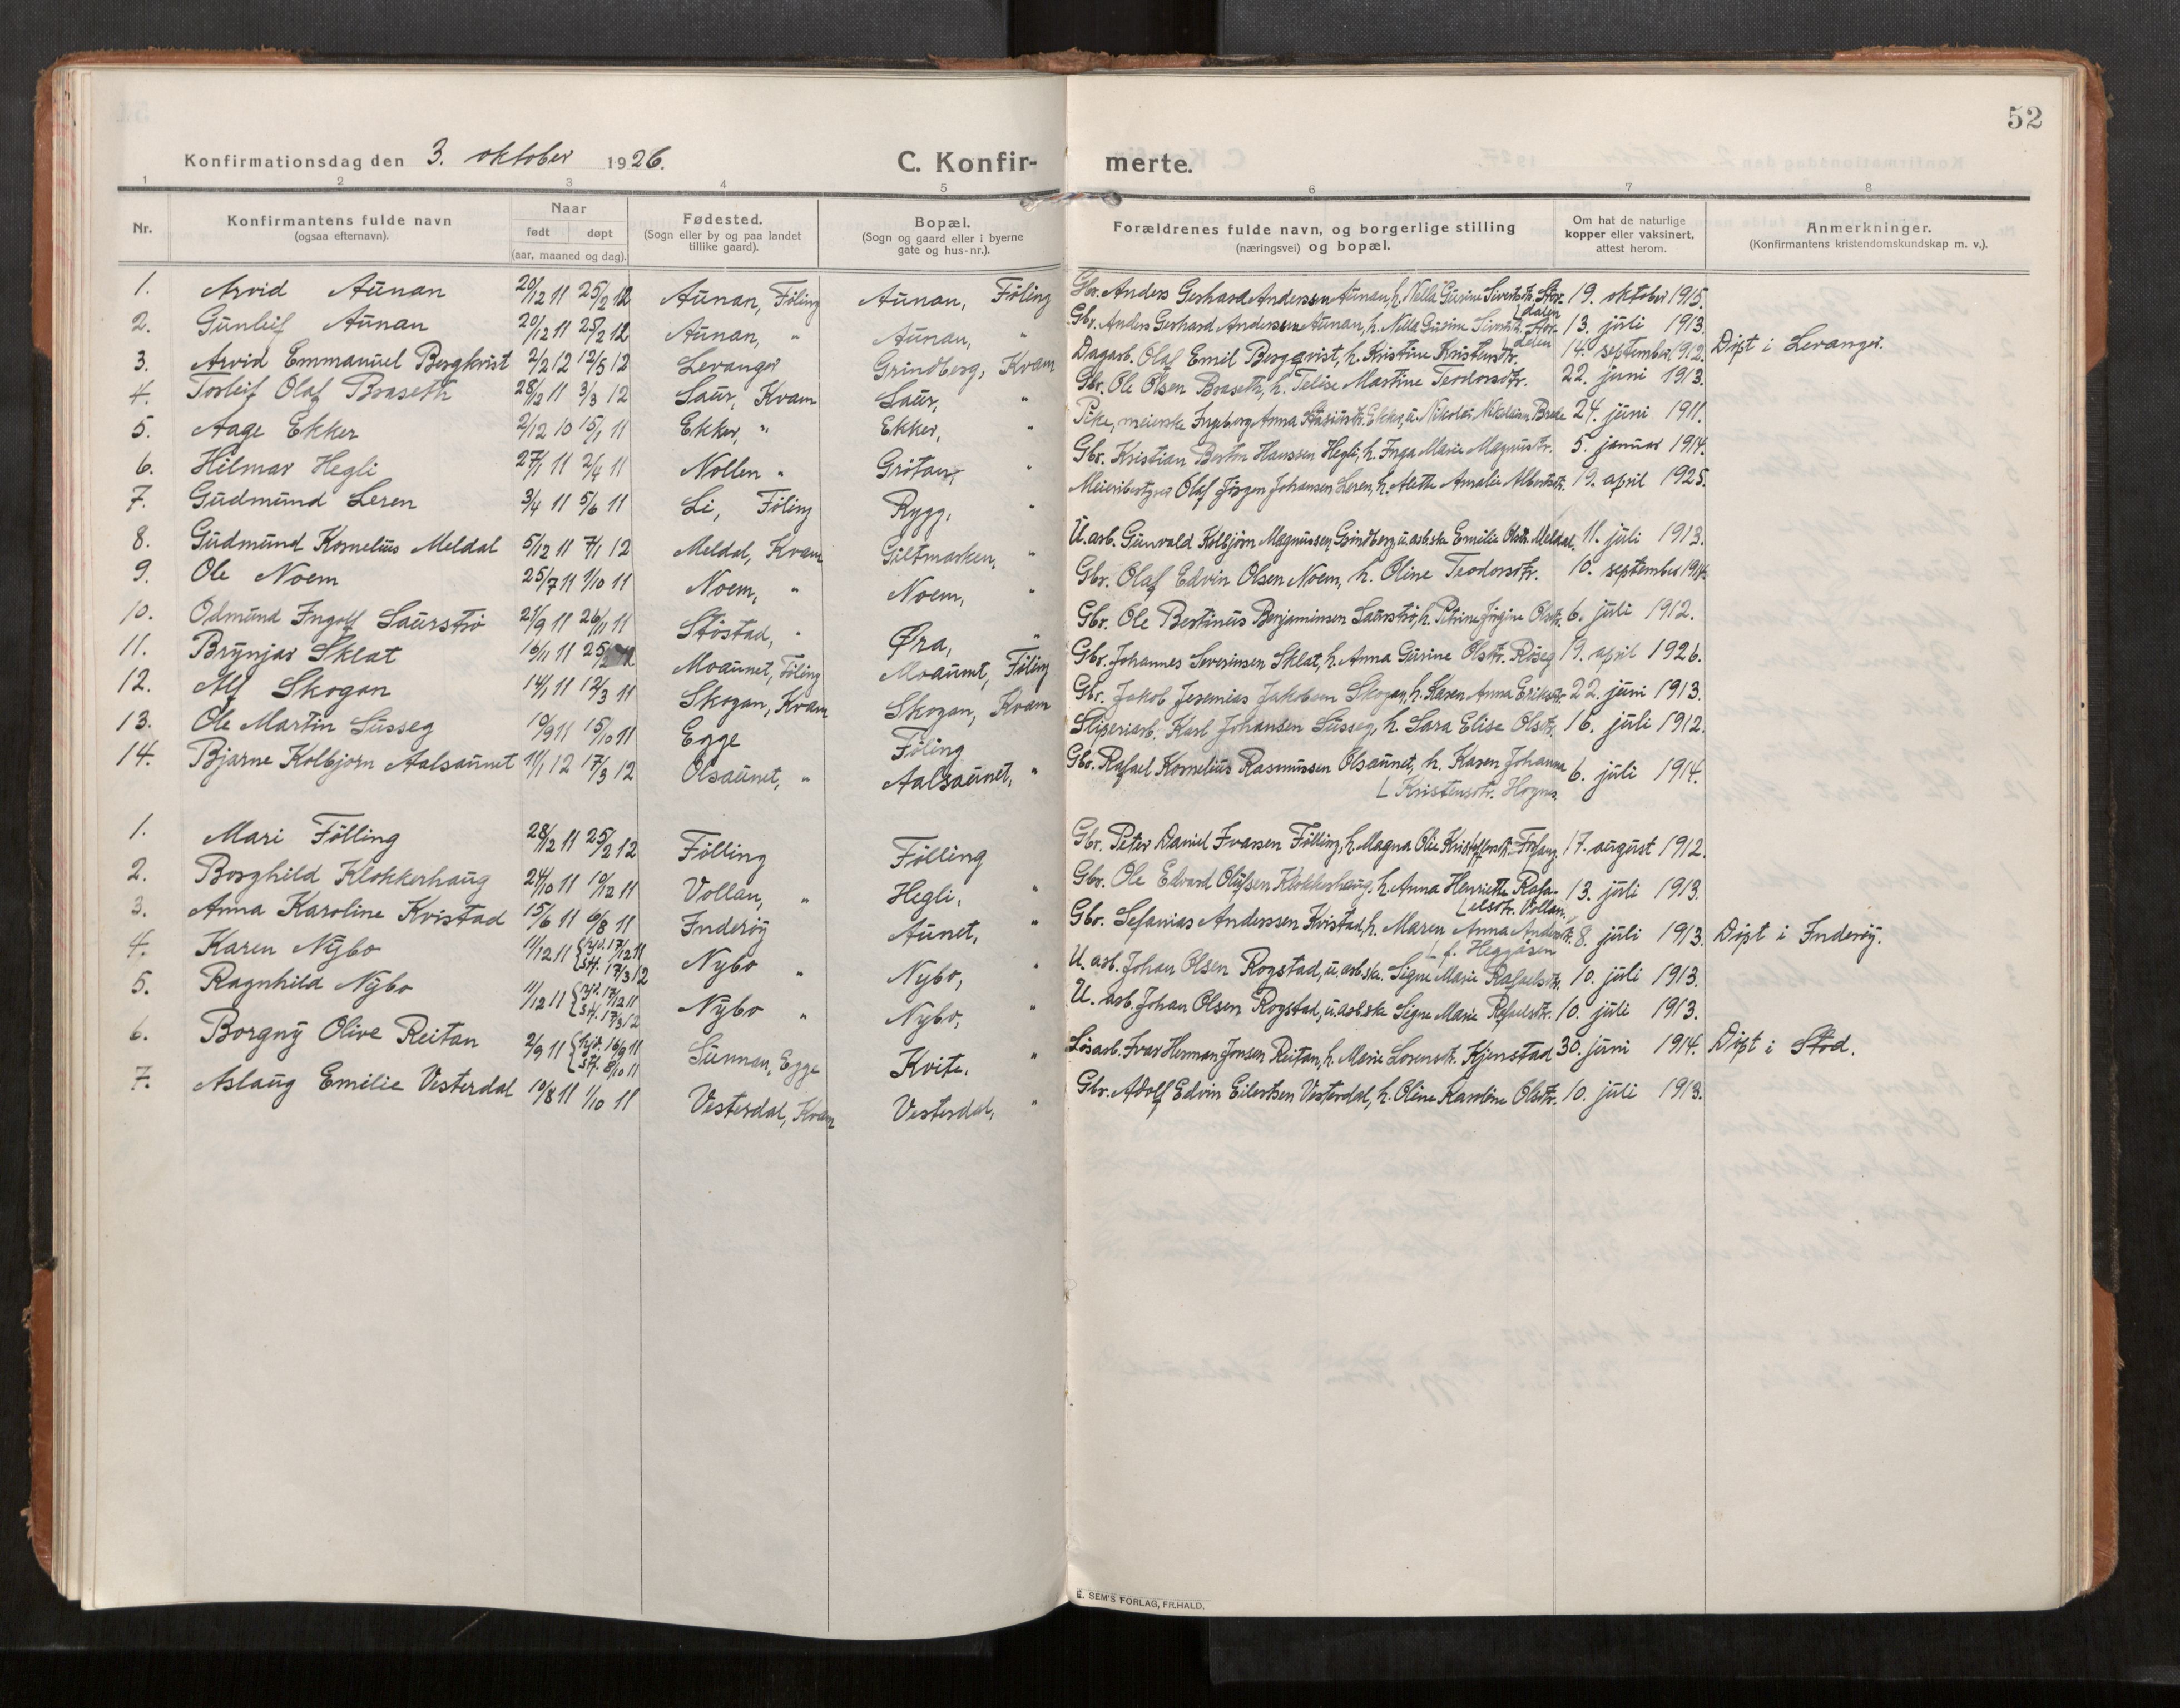 52
Konfirmationsdag den 3. oktober 1926. C. Konfir- merte.
1 2 3 4 5 6 7 8
Nr. Konfirmantens fulde navn (ogsaa efternavn). Naar født døpt (aar, maaned og dag). Fødested. (Sogn eller by og paa landet tillike gaard). Bopæl. (Sogn og gaard eller i byerne gate og hus-nr.). Forældrenes fulde navn, og borgerlige stilling (næringsvei) og bopæl. Om hat de naturlige kopper eller vaksinert, attest herom. Anmerkninger. (Konfirmantens kristendomskundskap m. v.).
1. Arvid Aunan 20/12 11 25/2 12 Aunan, Föling Aunan, Föling Gbr. Anders Gerhard Anderssen Aunan, h. Nella Gusine Sivertsdtr. Stor- 19. oktober 1915.
dalen
2. Gunleif Aunan 20/12 11 25/2 12 Aunan, " Aunan, " Gbr. Anders Gerhard Anderssen Aunan, h. Nella Gusine Sivertsdtr. Stor- 13. juli 1913.
dalen
3. Arvid Emmanuel Bergkvist 2/2 12 12/5 12 Levanger Grindberg, Kvam Dagarb. Olaf Emil Bergqvist, h. Kristine Kristensdtr. 14. september 1912. Döpt i Levanger.
4. Torleif Olaf Braseth 28/2 11 3/3 12 Saur, Kvam Saur, " Gbr. Ole Olsen Braseth, h. Telise Martine Teodorsdtr. 22. juni 1913.
5. Aage Ekker 2/12 10 15/1 11 Ekker, " Ekker, " Pike, meierske Ingeborg Anna Ekker, u. Nikolai Nikolaisen 24. juni 1911.
6. Hilmar Hegli 27/1 11 2/4 11 Nollen " Grötan, " Gbr. Kristian Hanssen Hegli, h. Inga Marie Magnusdtr. 5. januar 1914.
7. Gudmund Leren 3/4 11 5/6 11 Li, Föling Rygg, " Meieribestyrer Olaf Jörgen Johansen Leren, h. Alette Amalie Albertsdtr. 19. april 1925.
8. Gudmund Kornelius Meldal 5/12 11 7/1 12 Meldal, Kvam Giltmarken, " U. arb. Gunvald Kolbjörn Magnussen Grindberg, u. arb.ske Emilie Olsdtr. Meldal. 11. juli 1913.
9. Ole Noem 25/7 11 1/10 11 Noem, " Noem, " Gbr. Olaf Edvin Olsen Noem, h. Oline Teodorsdtr. 10. september 1914.
10. Odmund Ingolf Saurströ 21/9 11 26/11 11 Stöstad, " Øra, " Gbr. Ole Bertinus Benjaminsen Saurströ, h. Petrine Jörgine Olsdtr. 6. juli 1912.
11. Brynjar Sklat 16/11 11 25/ Moaunet, Föling Moaunet, Föling Gbr. Johannes Severinsen Sklat, h. Anna Gusine Olsdtr. Röseg 19. april 1926.
12. Alf Skogan 14/1 11 12/3 11 Skogan, Kvam Skogan, Kvam Gbr. Jakob Jeremias Jakobsen Skogan, h. Karen Anna Eriksdtr. 22. juni 1913.
13. Ole Martin Susseg 10/9 11 15/10 11 Egge Föling Sliperiarb. Karl Johansen Susseg, h. Sara Elise Olsdtr. 16. juli 1912.
14. Bjarne Kolbjorn Aalsaunet 11/1 12 17/3 12 Olsaunet, " Aalsaunet, " Gbr. Rafael Kornelius Rasmussen Olsaunet, h. Karen Johanna 6. juli 1914.
Kristensdtr. Hognes.
1. Mari Fölling 28/12 11 25/2 12 Fölling Fölling Gbr. Peter Daniel Ivarsen Fölling, h. Magna Olie Kristoffersdtr. Forfang. 17. august 1912.
2. Borghild Klokkerhaug 24/10 11 10/12 11 Vollan, " Hegli, " Gbr. Ole Edvard Olufsen Klokkerhaug, h. Anna Henriette Rafa- 13. juli 1913.
elsdtr. Vollan.
3. Anna Karoline Kvistad 15/6 11 6/8 11 Inderöy Aunet, " Gbr. Sefanias Anderssen Kvistad, h. Maren Anna Andersdtr. 8. juli 1913. Döpt i Inderöy.
f. Heggåsen
4. Karen Nybo 11/12 11 hjd. 17/12 11 Nybo " Nybo, " U. arb. Johan Olsen Rogstad, u. arb.ske. Signe Marie Rafaelsdtr. 10. juli 1913.
stf. 17/3 12
5. Ragnhild Nybo 11/12 11 hjd. 17/12 11 Nybo " Nybo, " U. arb. Johan Olsen Rogstad, u. arb.ske Signe Marie Rafaelsdtr. 10. juli 1913.
stf. 17/3 12
6. Borgny Olive Reitan 2/9 11 hjd. 16/9 11 Sunnan, Egge Kvite, " Lösarb. Ivar Herman Jonsen Reitan, h. Marie Lorensdtr. Kjenstad 30. juni 1914. Döpt i Stod.
stf. 8/10 11
7. Aslaug Emilie Vesterdal 10/8 11 1/10 11 Vesterdal, Kvam Vesterdal, " Gbr. Adolf Edvin Eilertsen Vesterdal, h. Oline Karoline Olsdtr. 10. juli 1913.
E. SEM'S FORLAG, FR.HALD.